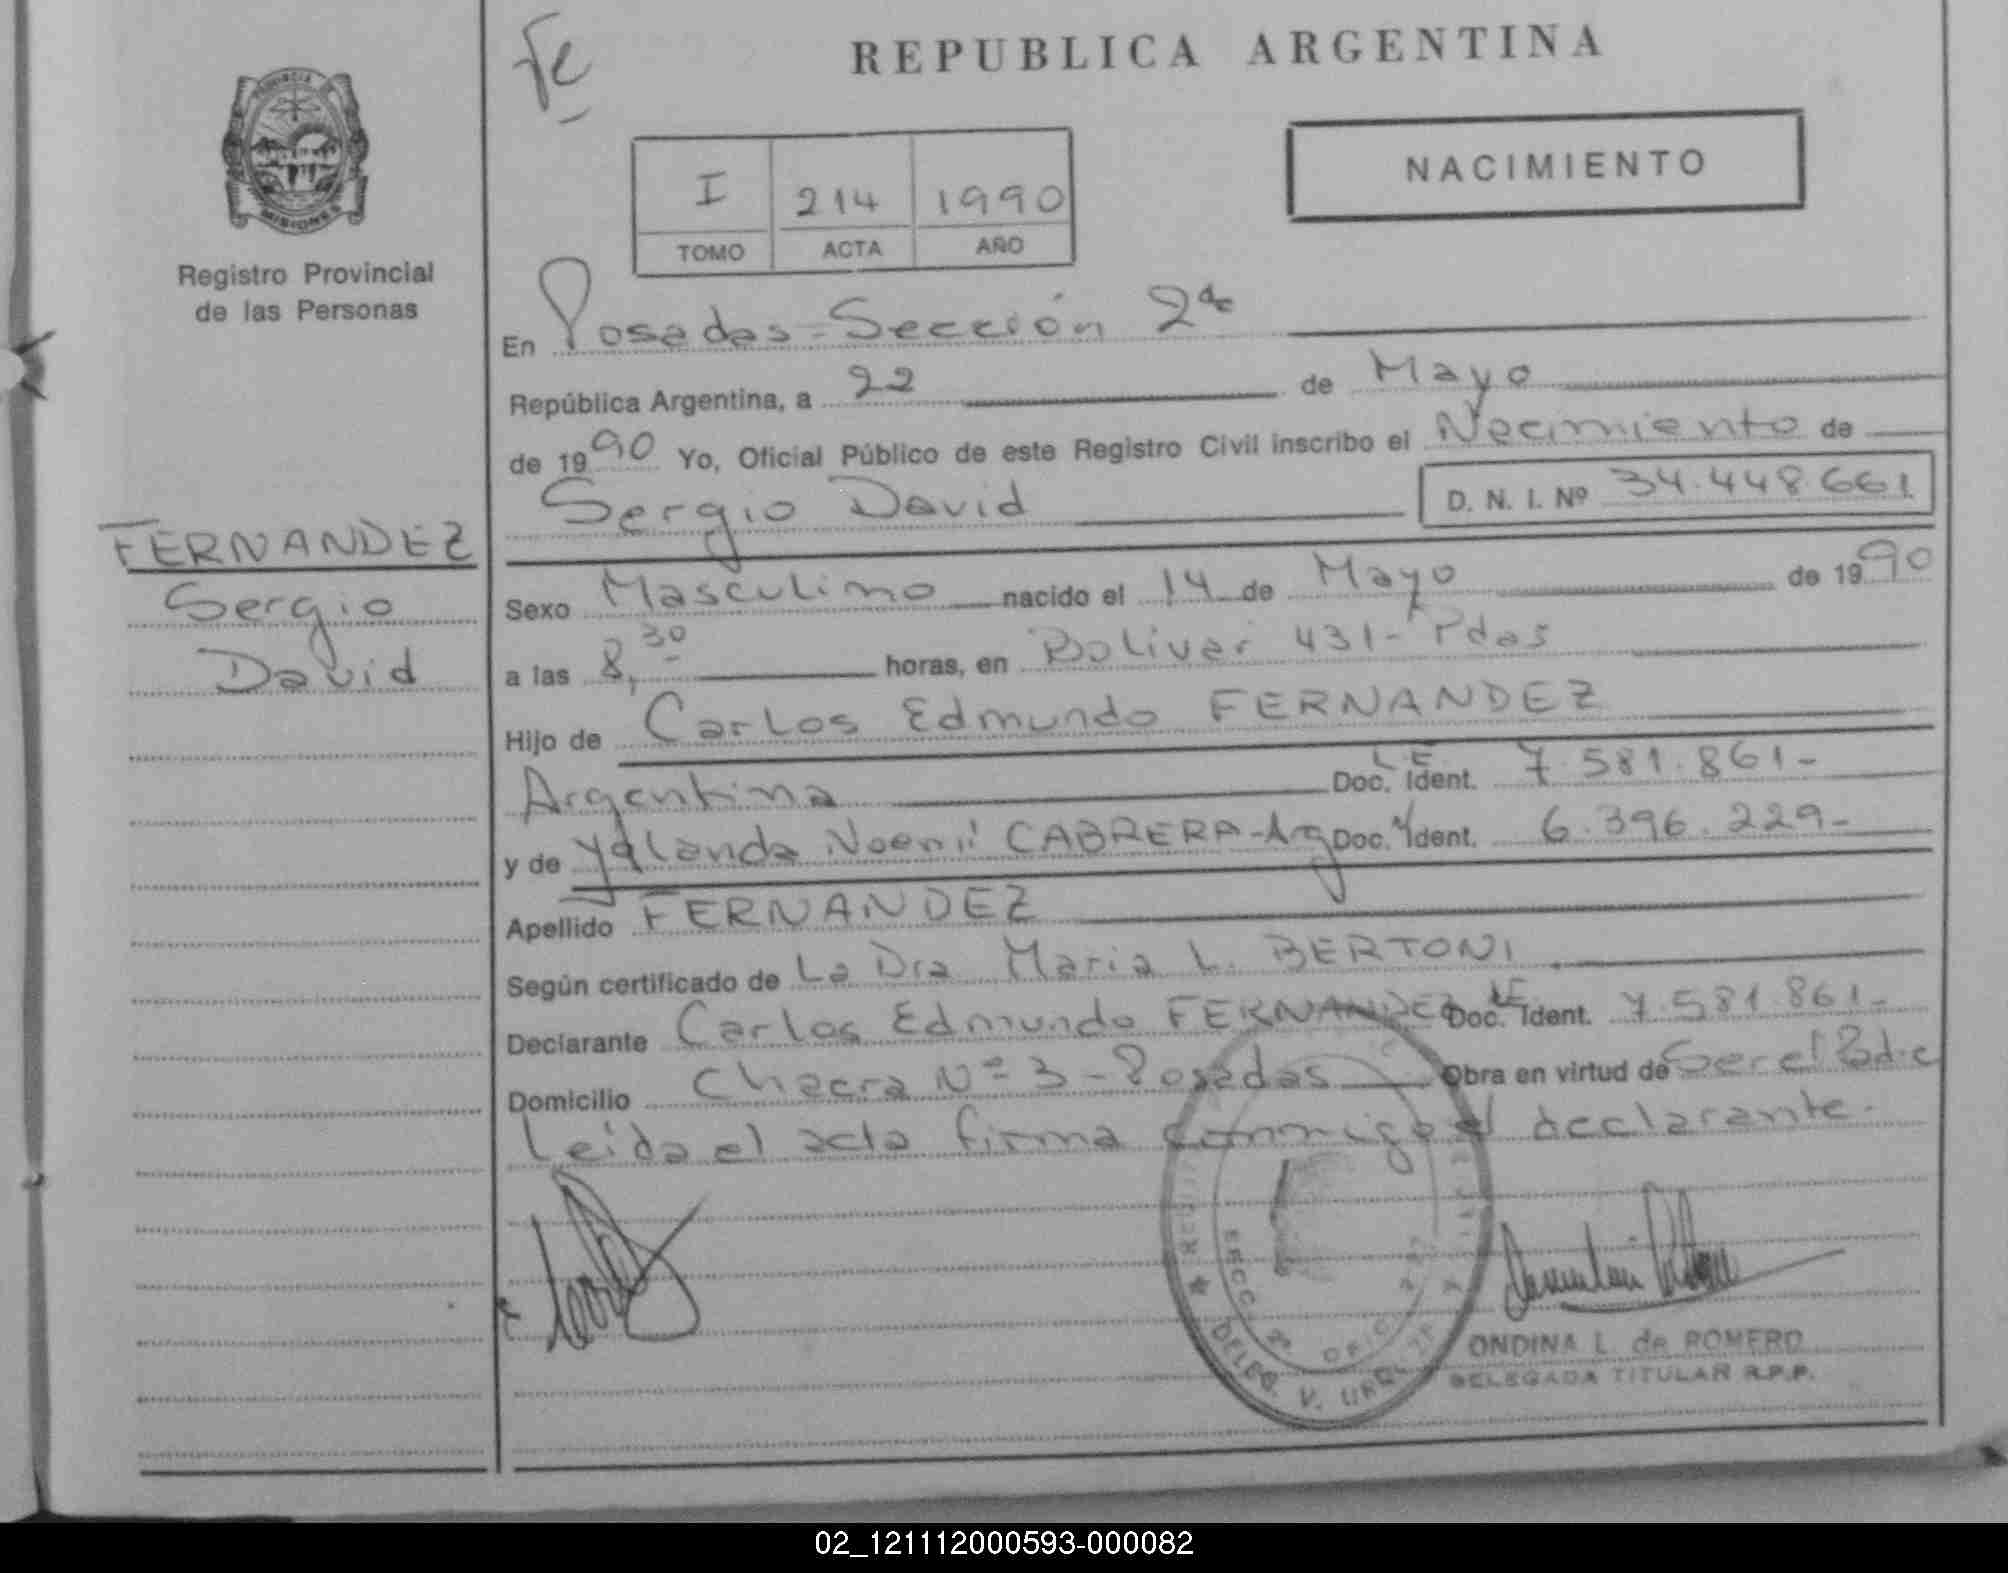 Fe
REPUBLICA ARGENTINA
PROVINCIA
MISIONES
Registro Provincial
de las Personas
I 214 1990
TOMO ACTA AÑO
NACIMIENTO
En Posadas - Sección 2da
República Argentina, a 22 de Mayo
de 1990 Yo, Oficial Público de este Registro Civil inscribo el Nacimiento de
Sergio David D. N. I. Nº 34.448.661
FERNANDEZ
Sergio
David
Sexo Masculino nacido el 14 de Mayo de 1990
a las 8,30 horas, en Bolivar 431 - Pdas
Hijo de Carlos Edmundo FERNANDEZ
Argentina Doc. Ident. L E 7.581.861-
y de Yolanda Noemí CABRERA - Arg Doc. Ident. 6.396.229-
Apellido FERNANDEZ
Según certificado de La Dra Maria L. BERTONI
Declarante Carlos Edmundo FERNANDEZ Doc. Ident. LE 7.581.861-
Domicilio Chacra Nº 3 - Posadas Obra en virtud de Ser el Padre
Leída el acta firma conmigo el declarante.
ONDINA L. de ROMERO
DELEGADA TITULAR R.P.P.
02_121112000593-000082